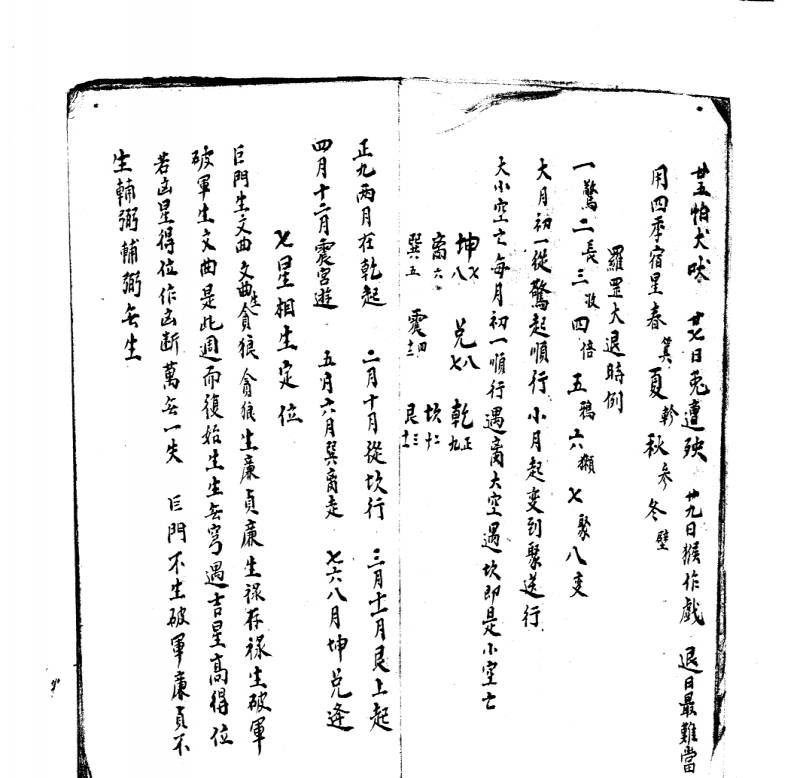 廿五怕犬吠 廿七日兎遭殃 廿九日猴作戲 退日最難當
用四季宿星春箕夏軫秋參冬壁
羅罡大退時例
一驚二長三收四倍五鴉六獺七聚八变
大月初一從驚起順行小月起变到聚送行
大小空亡每月初一順行遇离大空遇坎即是小空亡
坤七八 兑七八 乾正九
离六 震四 坎二十
巽五 艮三十一
正九兩月在乾起 二月十月從坎行 三月十一月艮上起
四月十二月震宮遊 五月六月巽离走 七六八月坤兑逢
七星相生定位
巨門生文曲文曲生貪狼貪狼生廉貞廉生禄存禄生破軍
破軍生文曲是此週而復始生生无穷遇吉星高得位
若凶星得位作凶断萬无一失 巨門不生破軍廉貞不
生輔弼輔弼无生